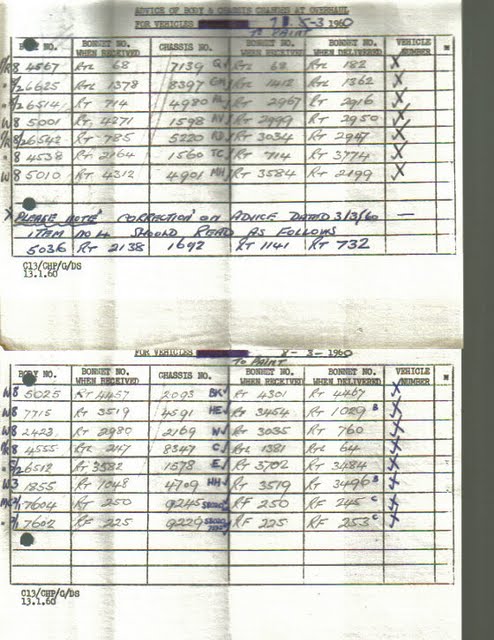 ADVICE OF BODY & CHASSIS CHANGES AT OVERHAUL
FOR VEHICLES 5-3-1960
TO PAINT
BODY NO. BONNET NO. WHEN RECEIVED CHASSIS NO. BONNET NO. WHEN RECEIVED BONNET NO. WHEN DELIVERED VEHICLE NUMBER
8 4567 RTL 68 7139 RTL 68 RTL 182 X
6625 RTL 1378 8397 RTL 1412 RTL 1362 X
6514 RT 714 4980 RT 2967 RT 2916 X
W8 5001 RT 4271 1598 AV RT 2999 RT 2950 X
6542 RT 785 5220 RT 3034 RT 2947 X
8 4538 RT 2164 1560 TC RT 714 RT 3774 X
W8 5010 RT 4312 4901 MH RT 3584 RT 2199 X
X PLEASE NOTE CORRECTION ON ADVICE DATED 3/3/60 —
ITEM NO 4 SHOULD READ AS FOLLOWS
5036 RT 2138 1692 RT 1141 RT 732
C13/CHP/G/DS
13.1.60
FOR VEHICLES -3-1960
TO PAINT
BODY NO. BONNET NO. WHEN RECEIVED CHASSIS NO. BONNET NO. WHEN RECEIVED BONNET NO. WHEN DELIVERED VEHICLE NUMBER
W8 5025 RT 4457 2093 BK RT 4301 RT 4467 X
W8 7715 RT 3519 4591 HE RT 3454 RT 1029 B X
W8 2423 RT 2980 2169 N RT 3035 RT 760 X
8 4555 RTL 217 8347 C RTL 1381 RTL 64 X
6512 RT 3582 1578 E RT 3702 RT 3484 X
W3 1855 RT 1048 4709 HH RT 3519 RT 3496 B X
7604 RT 250 9245 RF 250 RF 245 C X
7602 RF 225 9220 RF 225 RF 253 C X
C13/CHP/G/DS
13.1.60